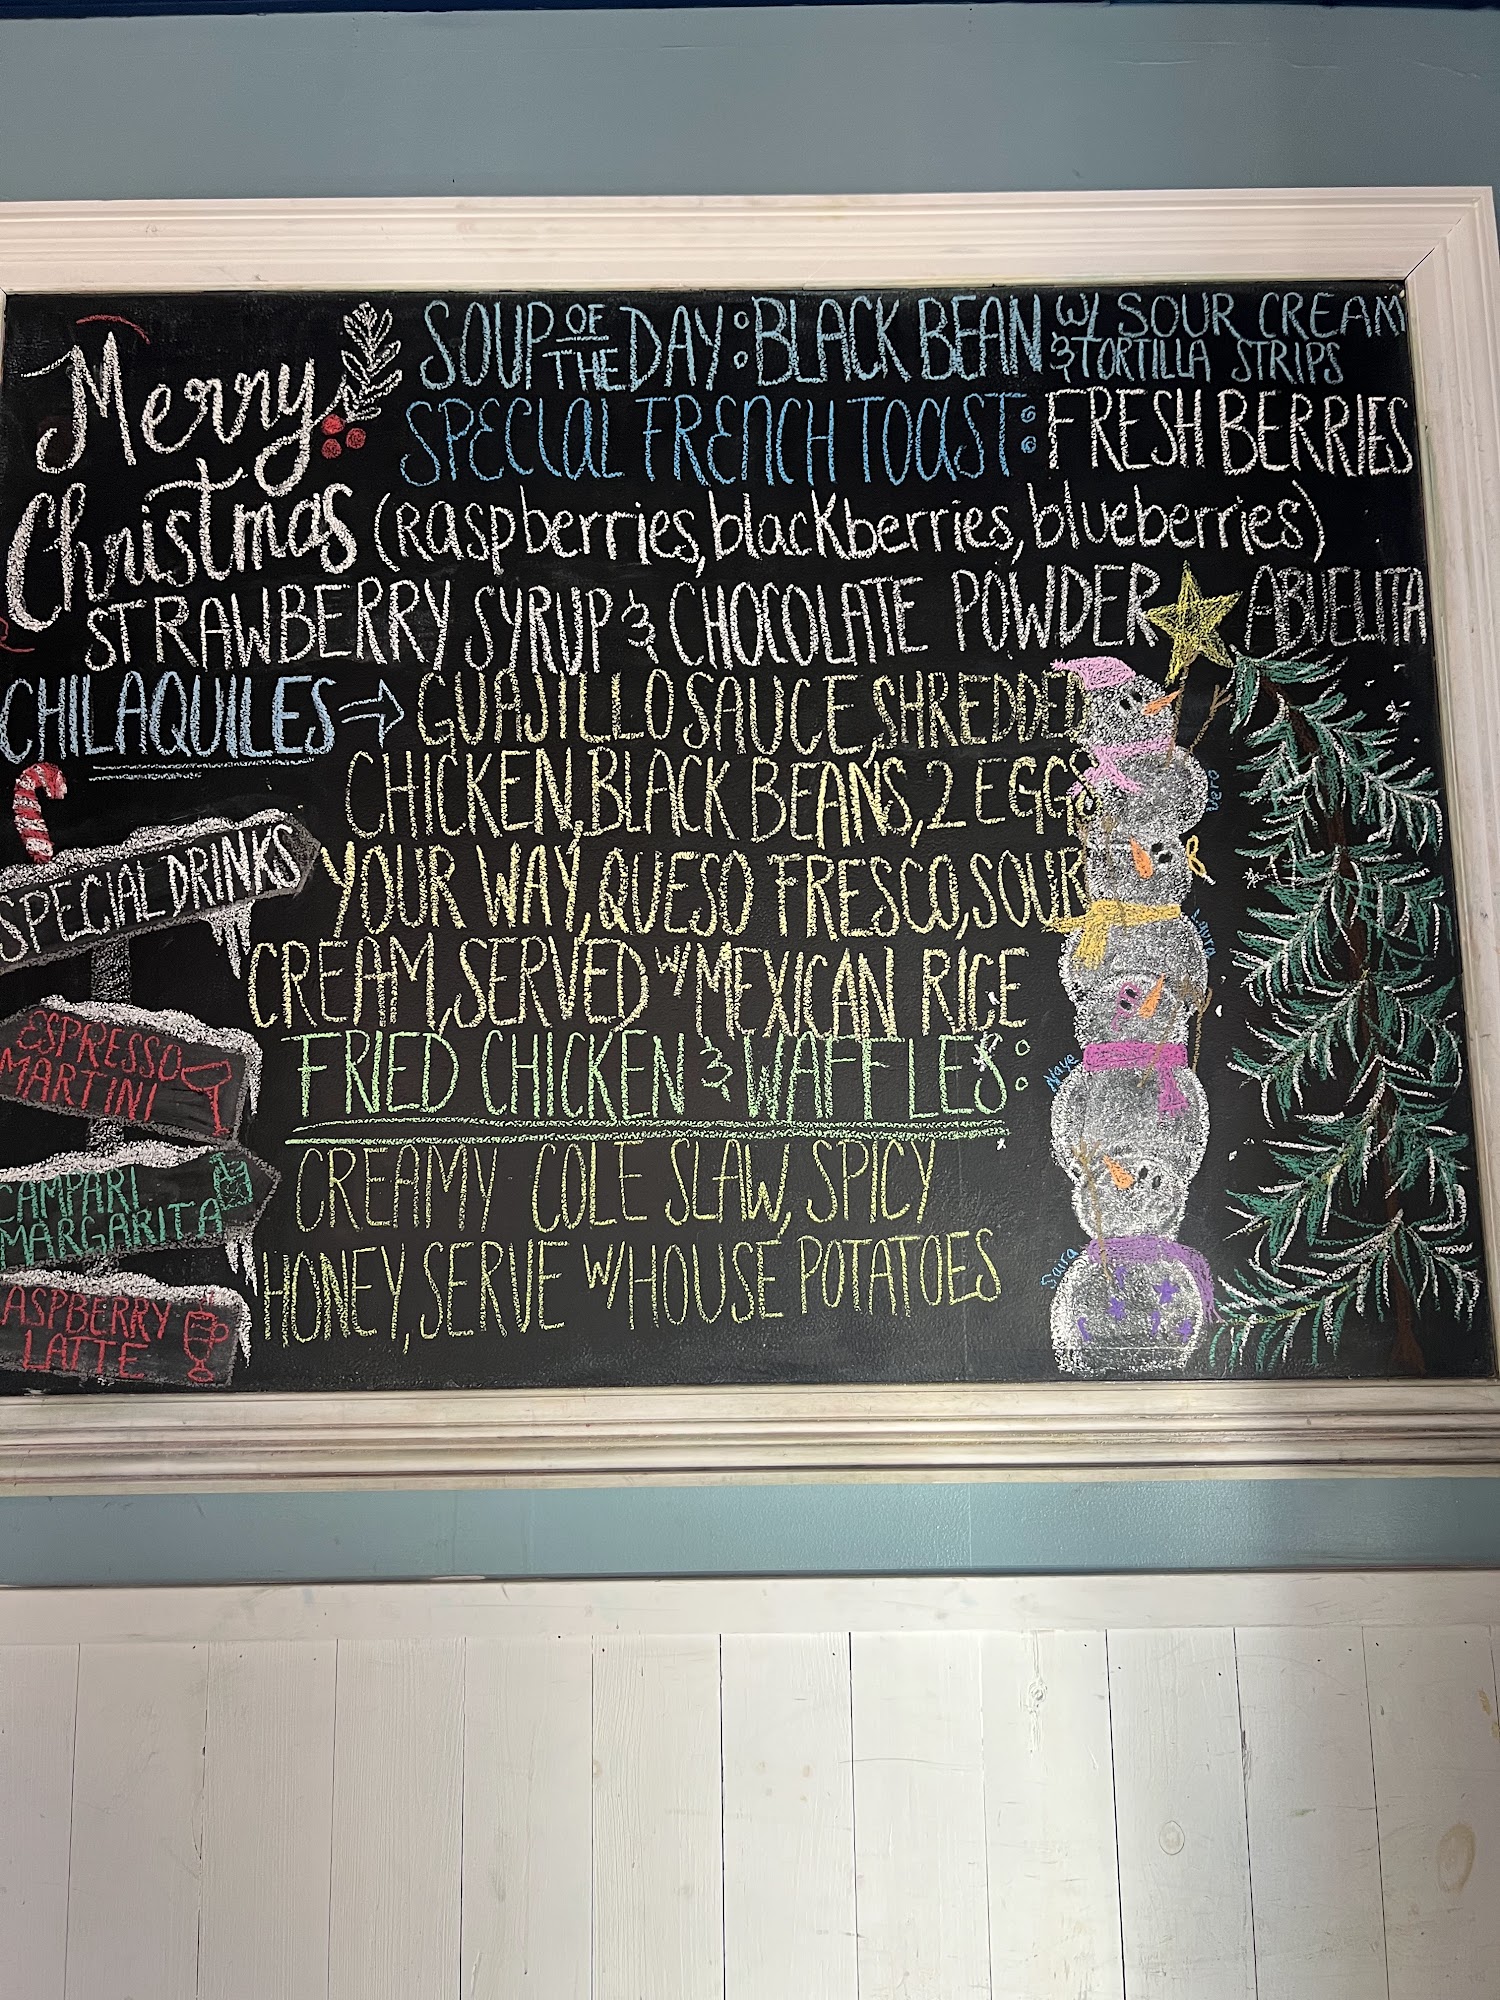 Merry
Christmas
SOUP OF THE DAY: BLACK BEAN W/ SOUR CREAM
& TORTILLA STRIPS
SPECIAL FRENCH TOAST: FRESH BERRIES
(Raspberries, blackberries, blueberries)
STRAWBERRY SYRUP & CHOCOLATE POWDER ABUELITA
CHILAQUILES → GUAJILLO SAUCE, SHREDDED
CHICKEN, BLACK BEANS, 2 EGGS
YOUR WAY, QUESO FRESCO, SOUR
CREAM, SERVED W/ MEXICAN RICE
FRIED CHICKEN & WAFFLES:
CREAMY COLE SLAW, SPICY
HONEY, SERVE W/ HOUSE POTATOES
SPECIAL DRINKS
ESPRESSO
MARTINI
CAMPARI
MARGARITA
ASPBERRY
LATTE
Vero
Naye